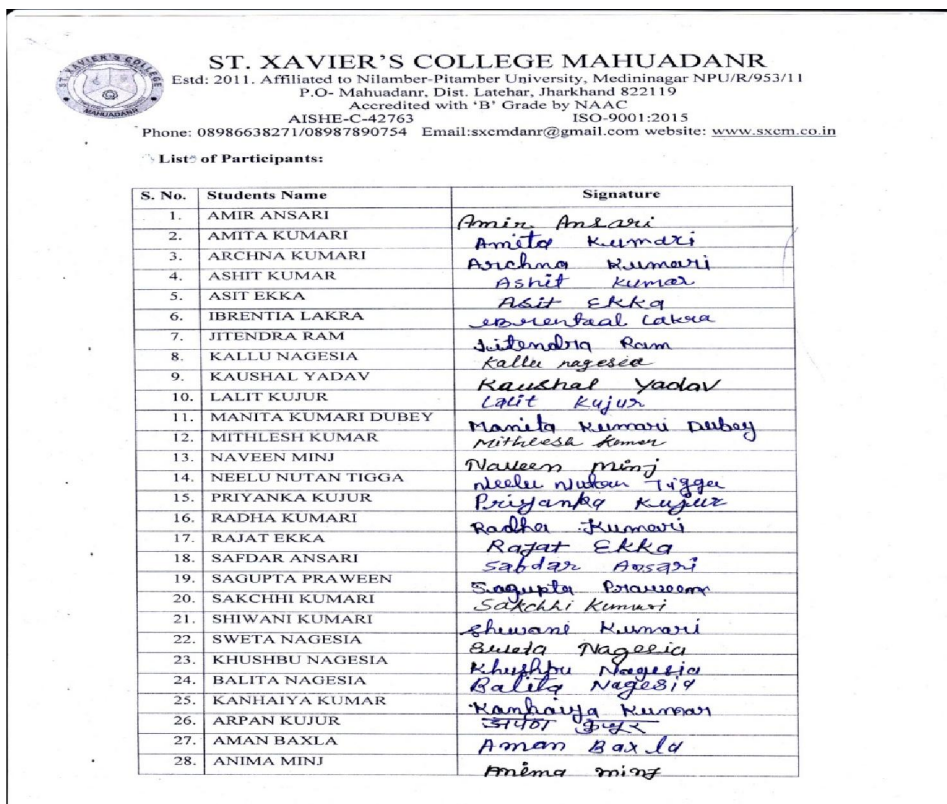 ST. XAVIER'S COLLEGE MAHUADANR
Estd: 2011. Affiliated to Nilamber-Pitamber University, Medininagar NPU/R/953/11
P.O- Mahuadanr, Dist. Latehar, Jharkhand 822119
Accredited with 'B' Grade by NAAC
AISHE-C-42763 ISO-9001:2015
Phone: 08986638271/08987890754 Email:sxcmdanr@gmail.com website: www.sxcm.co.in
ST. XAVIER'S COLLEGE
MAHUADANR
List of Participants:
S. No. Students Name Signature
1. AMIR ANSARI Amir Ansari
2. AMITA KUMARI Amita Kumari
3. ARCHNA KUMARI Archna Kumari
4. ASHIT KUMAR Ashit Kumar
5. ASIT EKKA Asit Ekka
6. IBRENTIA LAKRA Lakra
7. JITENDRA RAM Jitendra Ram
8. KALLU NAGESIA Kallu nagesia
9. KAUSHAL YADAV Kaushal Yadav
10. LALIT KUJUR Lalit Kujur
11. MANITA KUMARI DUBEY Manita Kumari Dubey
12. MITHLESH KUMAR Mithlesh Kumar
13. NAVEEN MINJ Naveen minj
14. NEELU NUTAN TIGGA Neelu Nutan Tigga
15. PRIYANKA KUJUR Priyanka Kujur
16. RADHA KUMARI Radha Kumari
17. RAJAT EKKA Rajat Ekka
18. SAFDAR ANSARI Sabdar Ansari
19. SAGUPTA PRAWEEN Sagupta Praween
20. SAKCHHI KUMARI Sakchhi Kumari
21. SHIWANI KUMARI Shiwani Kumari
22. SWETA NAGESIA Sweta Nagesia
23. KHUSHBU NAGESIA Khushbu Nagesia
24. BALITA NAGESIA Balita Nagesia
25. KANHAIYA KUMAR Kanhaiya Kumar
26. ARPAN KUJUR कुजूर
27. AMAN BAXLA Aman Baxla
28. ANIMA MINJ Anima minj